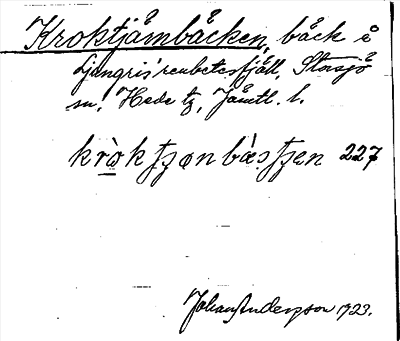 Kroktjåmbåcken, båck å
Ljungris'renbetesfjåll, Storsjö
sn, Hede tg, Jåmtl. l.
kròktʂønbàsʈʂen 227
Johan Anderson 1923.